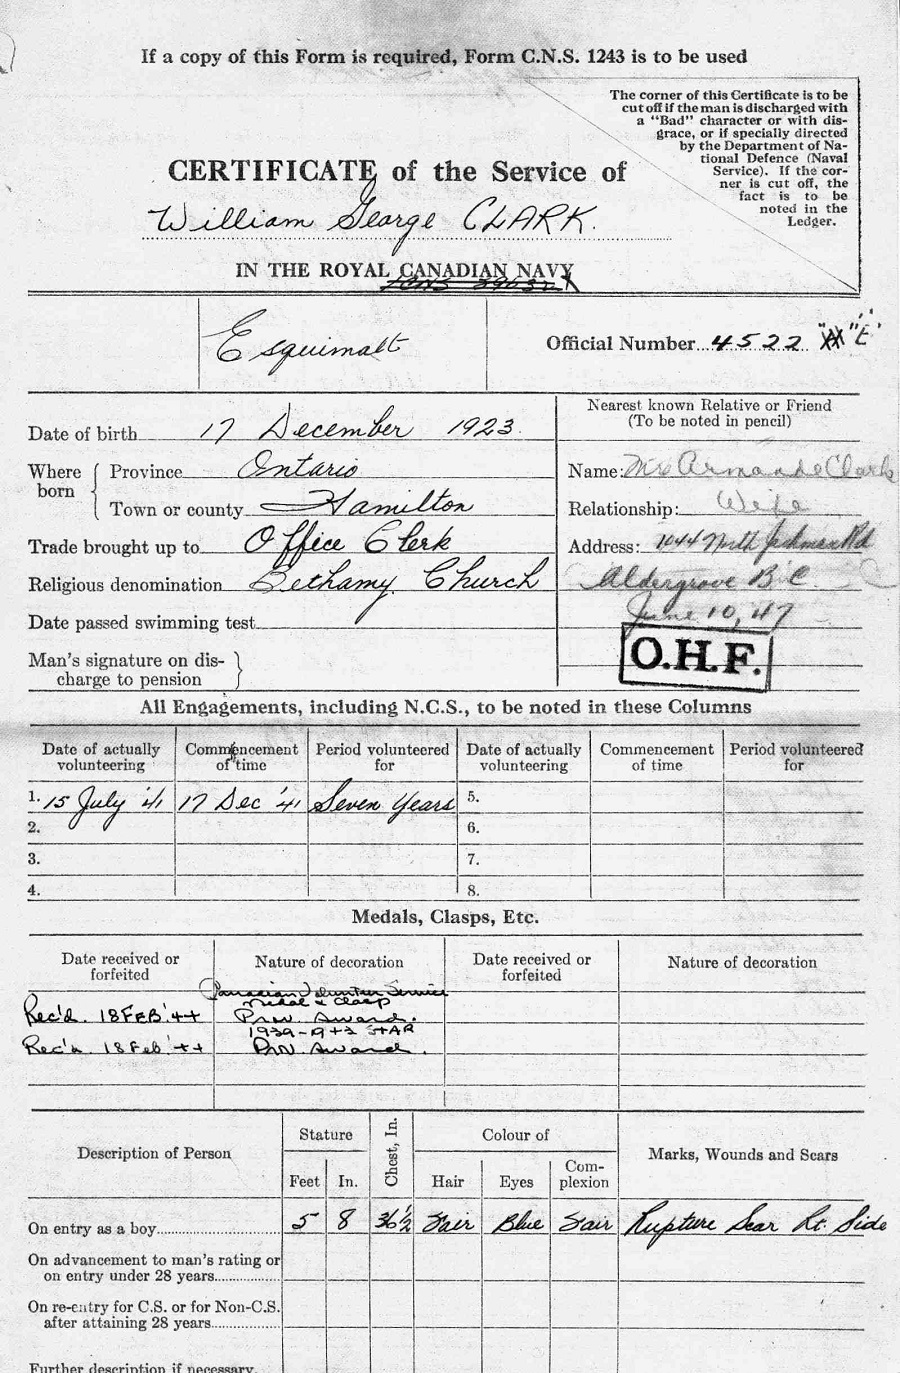 If a copy of this Form is required, Form C.N.S. 1243 is to be used
The corner of this Certificate is to be
cut off if the man is discharged with
a "Bad" character or with dis-
grace, or if specially directed
by the Department of Na-
tional Defence (Naval
Service). If the cor-
ner is cut off, the
fact is to be
noted in the
Ledger.
CERTIFICATE of the Service of
William George CLARK.
IN THE ROYAL CANADIAN NAVY
Esquimalt
Official Number 4522
Nearest known Relative or Friend
(To be noted in pencil)
Date of birth 17 December 1923
Where born
Province Ontario
Name: Mrs Armande Clark
Town or county Hamilton
Relationship: Wife
Trade brought up to Office Clerk
Address: 1044 North Jackman Rd
Religious denomination Bethamy Church
Aldergrove B C
Date passed swimming test
June 10, 47
O.H.F.
Man's signature on dis-
charge to pension
All Engagements, including N.C.S., to be noted in these Columns
Date of actually volunteering Commencement of time Period volunteered for Date of actually volunteering Commencement of time Period volunteered for
1. 15 July '41 17 Dec '41 Seven Years 5.
2. 6.
3. 7.
4. 8.
Medals, Clasps, Etc.
Date received or forfeited Nature of decoration Date received or forfeited Nature of decoration
Canadian Volunteer Service
Medal & Clasp
Rec'd. 18 FEB '44 Award.
1939-1943 STAR
Rec'd. 18 Feb '44 Award.
Description of Person Stature Chest, In. Colour of Marks, Wounds and Scars
Feet In. Hair Eyes Com-plexion
On entry as a boy 5 8 36½ Fair Blue Fair Rupture Scar Rt. Side
On advancement to man's rating or
on entry under 28 years
On re-entry for C.S. or for Non-C.S.
after attaining 28 years
Further description if necessary.